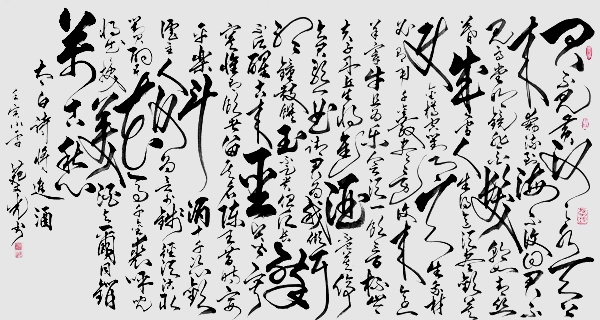 君不見黃河之水天上
來奔流到海不復回君不
見高堂明鏡悲白髮朝如青絲
暮成雪人生得意須盡歡莫
使金樽空對月天生我材
必有用千金散盡還復來烹
羊宰牛且為樂會須一飲三百杯岑
夫子丹丘生將進酒杯莫停
與君歌一曲請君為我傾耳
聽鐘鼓饌玉不足貴但願長醉
不願醒古來聖賢皆寂
寞惟有飲者留其名陳王昔時宴
平樂斗酒十千恣歡
謔主人何為言少錢徑須沽取
對君酌五花馬千金裘呼兒
將出換美酒與爾同銷
萬古愁
太白詩將進酒
壬寅